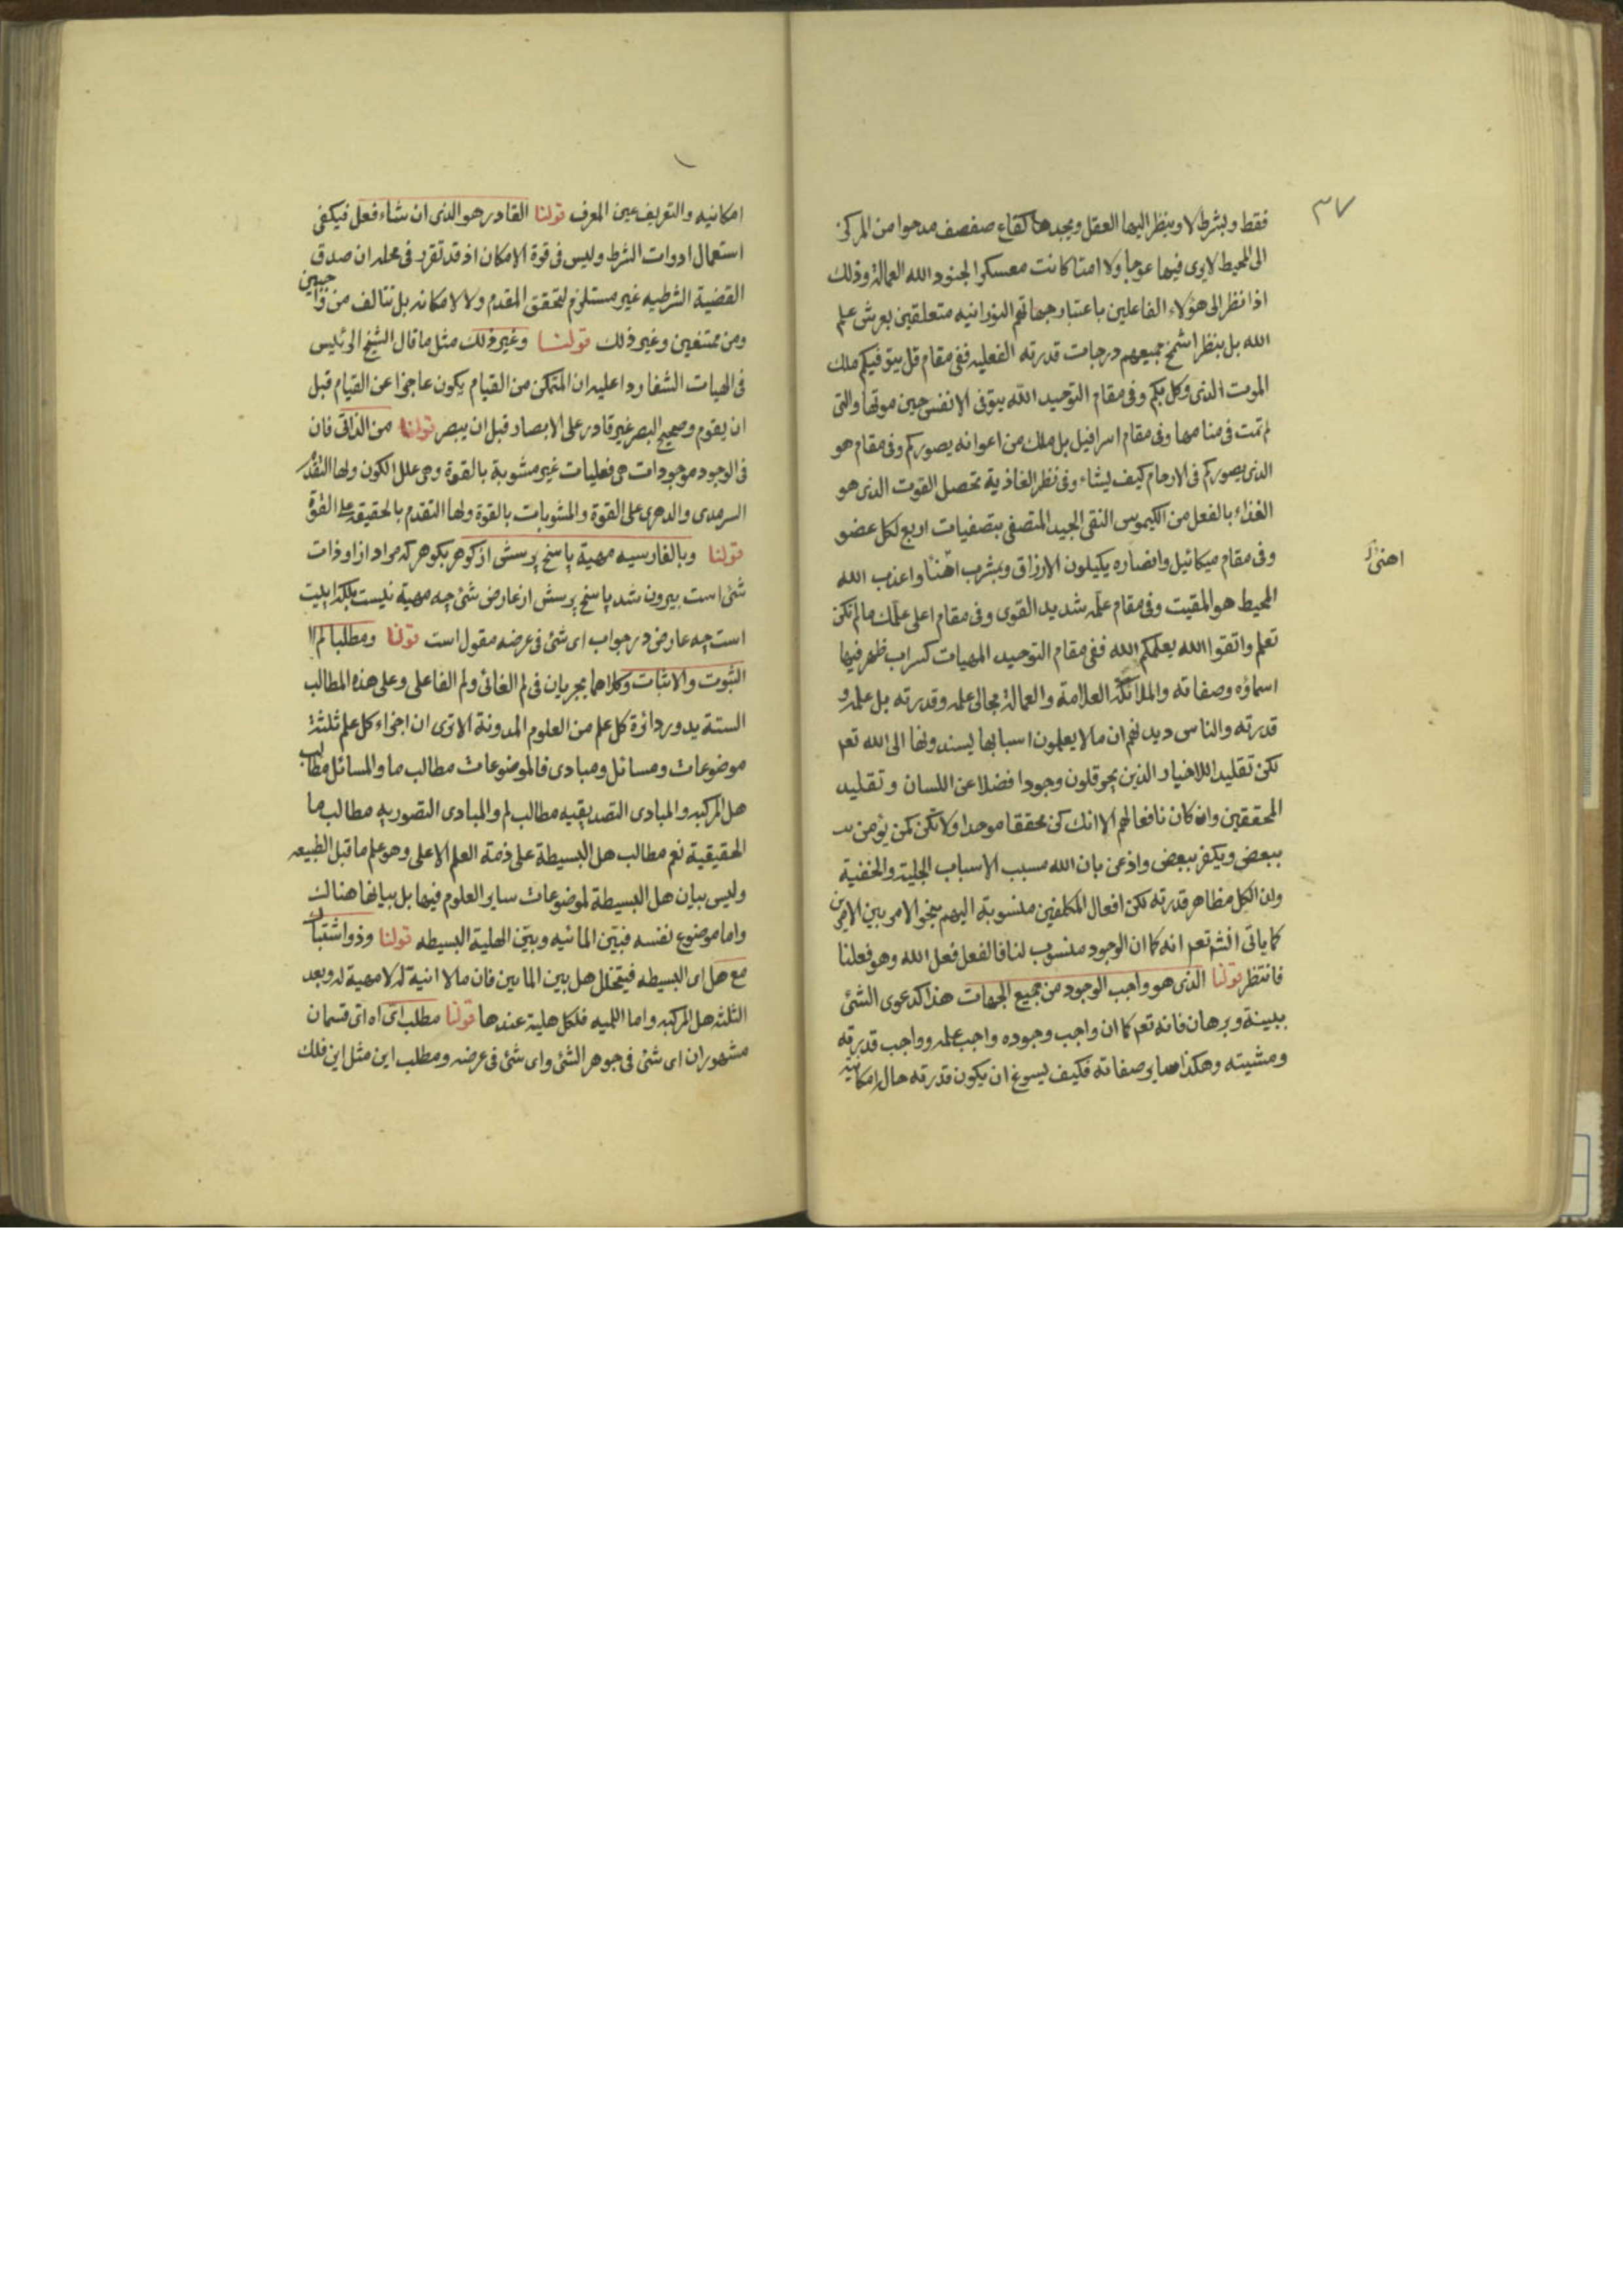 ٣٧
فقط وبشرط لا وينظر اليها العقل ويجدها كقاع صفصف مدحوا من المركز
الى المحيط لا يرى فيها عوجا ولا امتا كانت معسكرا لجنود الله العمالة وذلك
اذا نظر الى هؤلاء الفاعلين باعتبار جهاتهم النورانيه متعلقين بعرش علم
الله بل بنظر اشمخ جميعهم درجات قدرته الفعليه ففى مقام قل يتوفيكم ملك
الموت الذى وكل بكم وفى مقام التوحيد الله يتوفى الانفس حين موتها والتى
لم تمت فى منامها وفى مقام اسرافيل بل ملك من اعوانه يصوركم وفى مقام هو
الذى يصوركم فى الارحام كيف يشاء وفى نظر الغاذية تحصل القوت الذى هو
الغذاء بالفعل من الكيموس النقى الجيد المتصفى بتصفيات اربع لكل عضو
وفى مقام ميكائيل وانصاره يكيلون الارزاق وبمشرب اهنأ واعذب الله
اهنى
المحيط هو المقيت وفى مقام علمه شديد القوى وفى مقام اعلى علمك ما لم تكن
تعلم واتقوا الله يعلمكم الله ففى مقام التوحيد المهيات كسراب ظهر فيها
اسماؤه وصفاته والملائكة العلامة والعمالة مجالى علمه وقدرته بل علمه و
قدرته والناس ديدنهم ان ما لا يعلمون اسبابها يسندونها الى الله تعم
لكن تقليد اللاخيار الذين يحوقلون وجودا فضلا عن اللسان وتقليد
المحققين وان كان نافعا لهم الا انك كن محققا موحدا ولا تكن كمن يؤمن
ببعض ويكفر ببعض واذعن بان الله مسبب الاسباب الجلية والخفية
وان الكل مظاهر قدرته لكن افعال المكلفين منسوبة اليهم بنحو الامر بين الامرين
كما ياتى انشم تعم انه كما ان الوجود منسوب لنا فالفعل فعل الله وهو فعلنا
فانتظر قولنا الذى هو واجب الوجود من جميع الجهات هذا كدعوى الشئ
ببينة وبرهان فانه تعم كما ان واجب وجوده واجب علمه وواجب قدرته
ومشيته وهكذا ساير صفاته فكيف يسوغ ان يكون قدرته حال امكانية
امكانيه والتعريف عين المعرف قولنا القادر هو الذى ان شاء فعل فيكفى
استعمال ادوات الشرط وليس فى قوة الامكان اذ قد تقرر فى محله ان صدق
القضية الشرطيه غير مستلزم لتحقق المقدم ولا لامكانه بل تتالف من واجبين
ومن ممتنعين وغير ذلك قولنا وغير ذلك مثل ما قال الشيخ الرئيس
فى الهيات الشفا ردا عليه ان المتمكن من القيام يكون عاجزا عن القيام قبل
ان يقوم وصحيح البصر غير قادر على الابصار قبل ان يبصر قولنا من الذاتى فان
فى الوجود موجودات هى فعليات غير مشوبة بالقوة وهى علل الكون ولها التقدم
السرمدى والدهرى على القوة والمشوبات بالقوة ولها التقدم بالحقيقه على القوة
قولنا وبالفارسيه مهية پاسخ پرسش از كوهر بكوهر كه مراد از او ذات
شئ است بيرون شد پاسخ پرسش از عارض شئ چه مهية نيست بلكه ايليت
است چه عارض در جواب اى شئ فى عرضه مقول است قولنا ومطلبا لم الا
الثبوت والاثبات وكلاهما يجريان فى لم الغائى ولم الفاعلى وعلى هذه المطالب
الستة يدور دائرة كل علم من العلوم المدونة الا ترى ان اجزاء كل علم ثلثة
موضوعات ومسائل ومبادى فالموضوعات مطالب ما والمسائل مطالب
هل المركبه والمبادى التصديقيه مطالب لم والمبادى التصوريه مطالب ما
الحقيقية نعم مطالب هل البسيطة على ذمة العلم الاعلى وهو علم ما قبل الطبيعه
وليس بيان هل البسيطة لموضوعات ساير العلوم فيها بل بيانها هنالك
واما موضوع نفسه فبيّن المائيه وبيّن الهلية البسيطه قولنا وذو اشتباك
مع هل اى البسيطه فيتخلل هل بين المايين فان ما لا انية له لا مهية له وبعد
الثلثه هل المركبه واما اللميه فلكل هلية عندها قولنا مطلب اى اه اى قسمان
مشهوران اى شئ فى جوهر الشئ واى شئ فى عرضه ومطلب اين مثل اين فلك